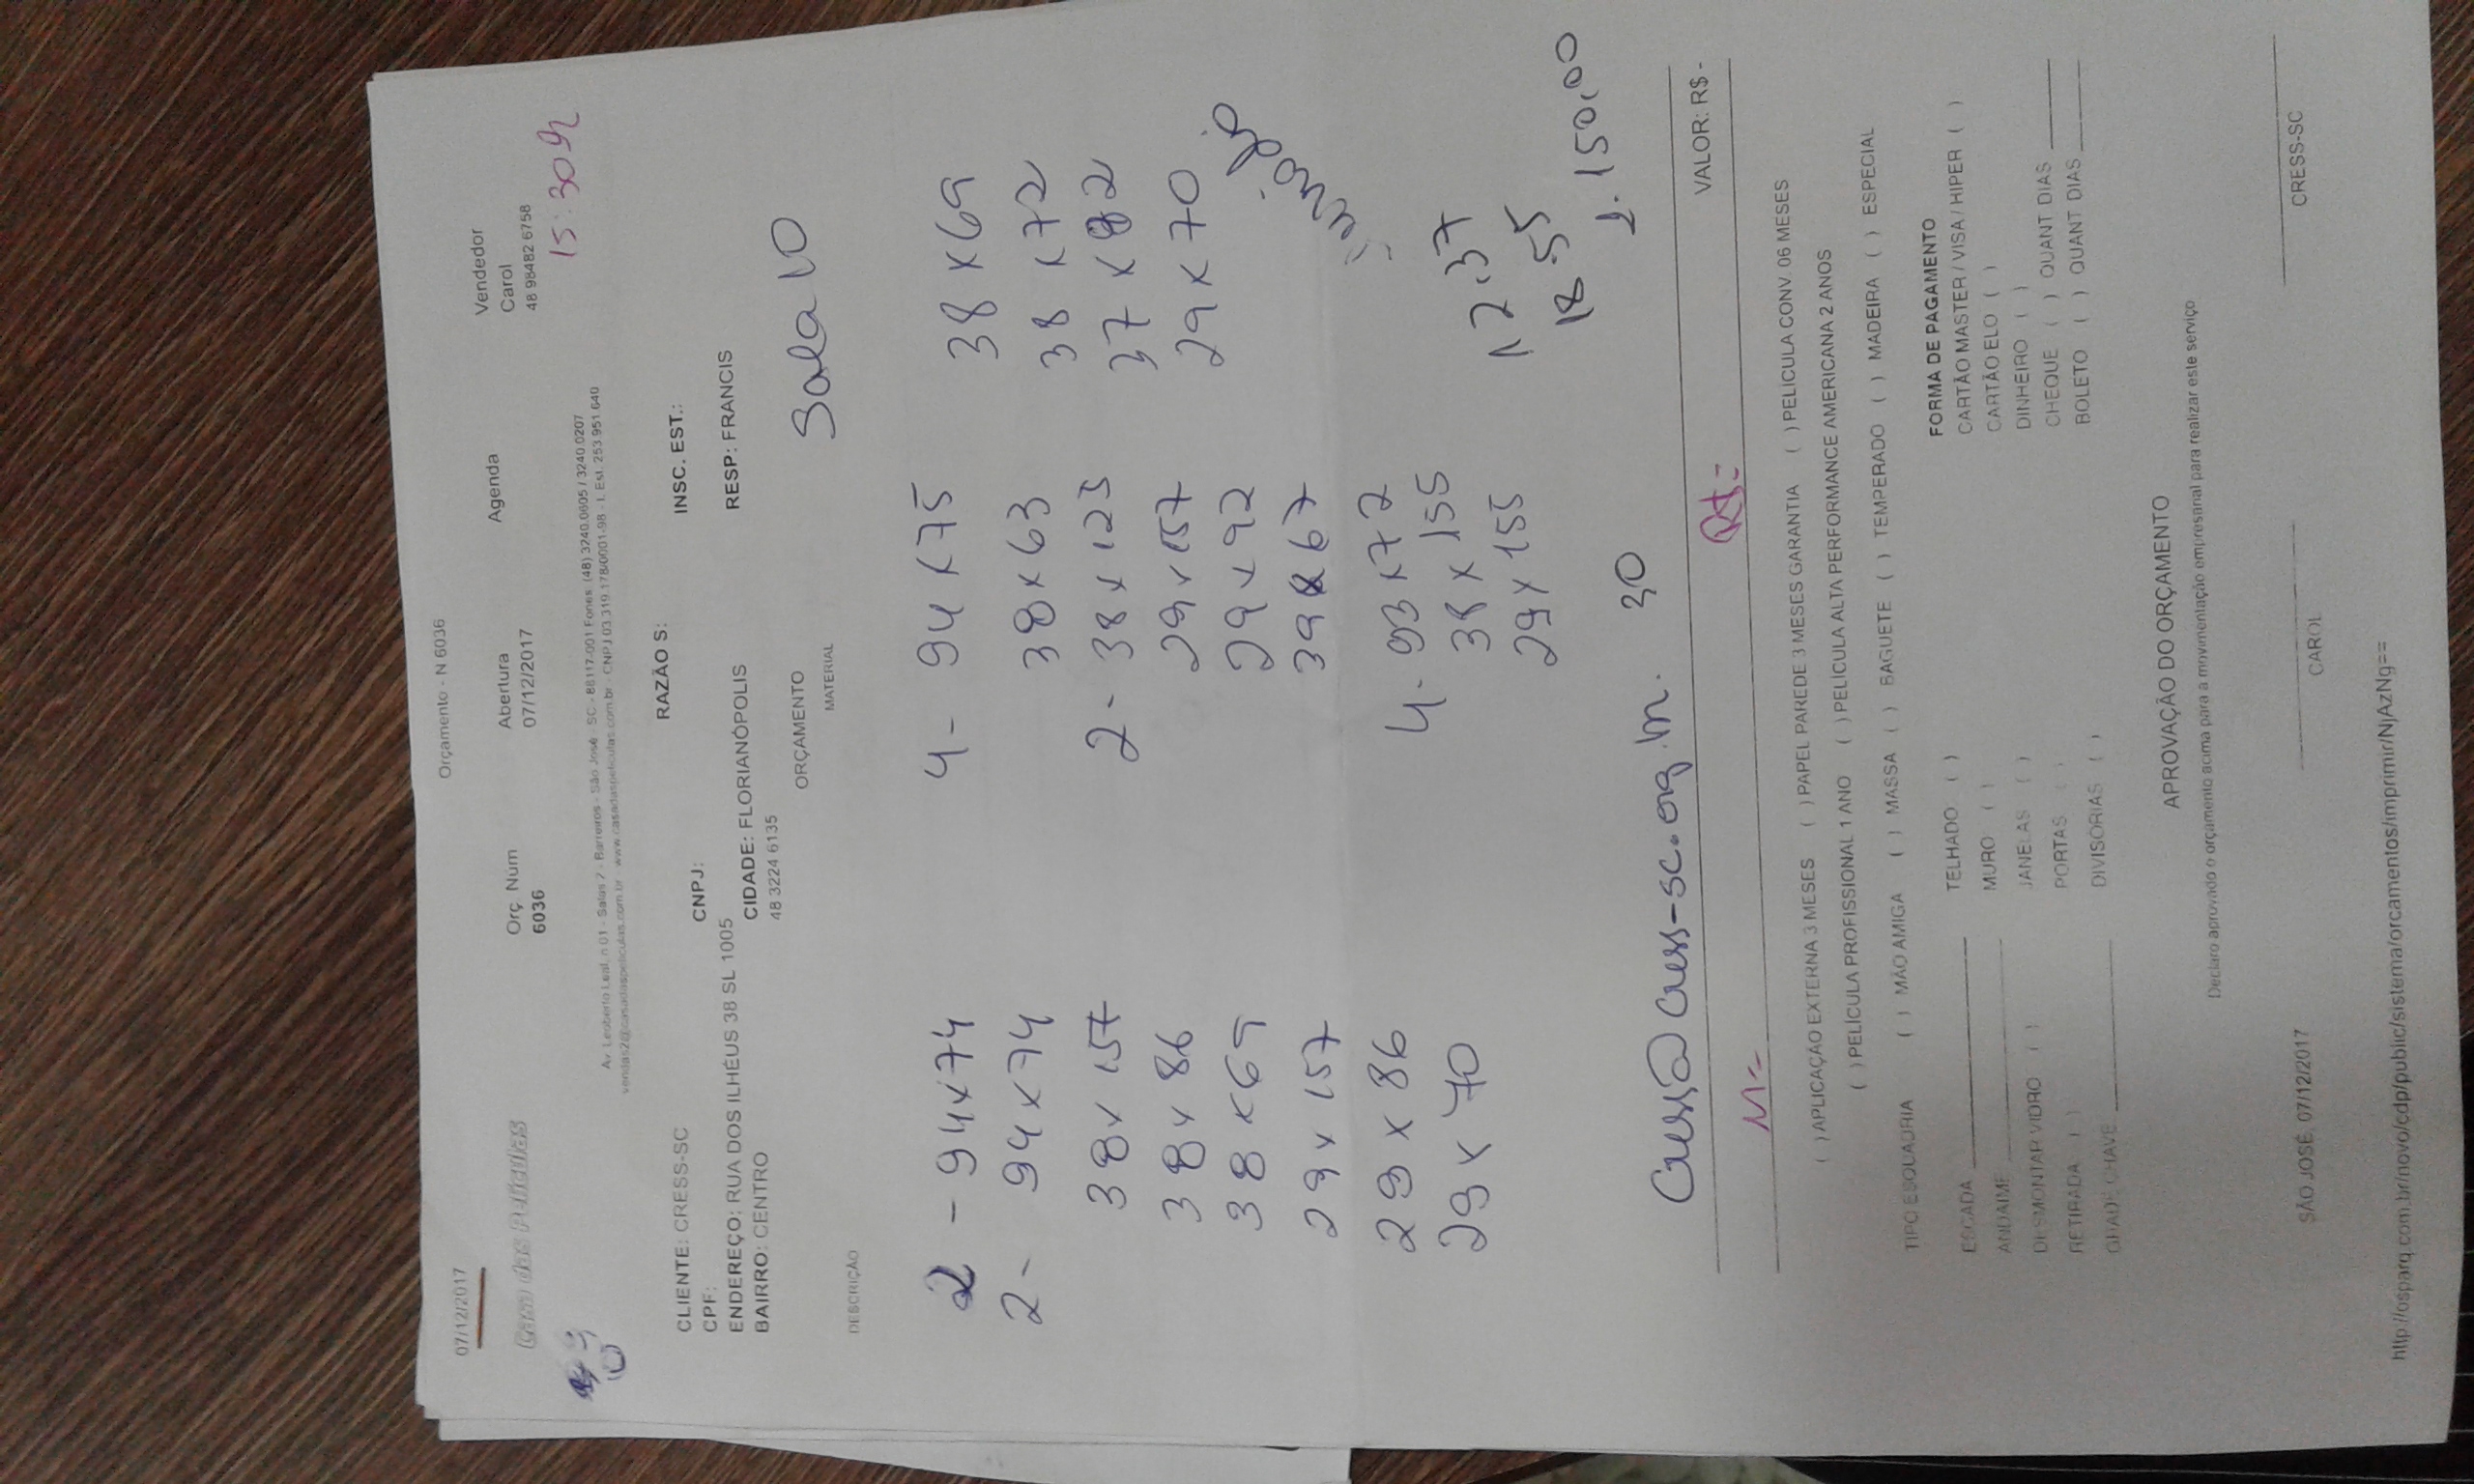 07/12/2017
Orçamento - N 6036
Casa das Películas
Orç Num
6036
Abertura
07/12/2017
Agenda
Vendedor
Carol
48 98482 6758
15:30h
Av Leoberto Leal, n 01 - Salas 7 - Barreiros - São José - SC - 88117-001 Fones: (48) 3240.0605 / 3240.0207
vendas2@casadaspeliculas.com.br - www.casadaspeliculas.com.br - CNPJ 03.319.178/0001-98 - I. Est. 253.951.640
CLIENTE: CRESS-SC
RAZÃO S:
CPF:
CNPJ:
INSC. EST.:
ENDEREÇO: RUA DOS ILHÉUS 38 SL 1005
BAIRRO: CENTRO
CIDADE: FLORIANÓPOLIS
RESP: FRANCIS
48 3224 6135
ORÇAMENTO
DESCRIÇÃO
MATERIAL
Sala 10
2 - 94x74
2 - 94x74
38x157
38x86
38x69
29x157
29x86
29x70
4 - 94x75
38x63
2 - 38x123
29x157
29x92
39x67
4 - 93x72
38x155
29x155
38x69
38x72
37x82
29x70
12,37
18,55
2.150,00
30
cress@cress-sc.org.br.
VALOR: R$ -
M=
R$=
( ) APLICAÇÃO EXTERNA 3 MESES ( ) PAPEL PAREDE 3 MESES GARANTIA ( ) PELÍCULA CONV. 06 MESES
( ) PELÍCULA PROFISSIONAL 1 ANO ( ) PELÍCULA ALTA PERFORMANCE AMERICANA 2 ANOS
TIPO ESQUADRIA ( ) MÃO AMIGA ( ) MASSA ( ) BAGUETE ( ) TEMPERADO ( ) MADEIRA ( ) ESPECIAL
ESCADA
ANDAIME
DESMONTAR VIDRO ( )
RETIRADA ( )
GRADE CHAVE
TELHADO ( )
MURO ( )
JANELAS ( )
PORTAS ( )
DIVISÓRIAS ( )
FORMA DE PAGAMENTO
CARTÃO MASTER / VISA / HIPER ( )
CARTÃO ELO ( )
DINHEIRO ( )
CHEQUE ( ) QUANT DIAS
BOLETO ( ) QUANT DIAS
APROVAÇÃO DO ORÇAMENTO
Declaro aprovado o orçamento acima para a movimentação empresarial para realizar este serviço
SÃO JOSÉ, 07/12/2017
CAROL
CRESS-SC
http://osparq.com.br/novo/cdp/public/sistema/orcamentos/imprimir/NjAzNg==